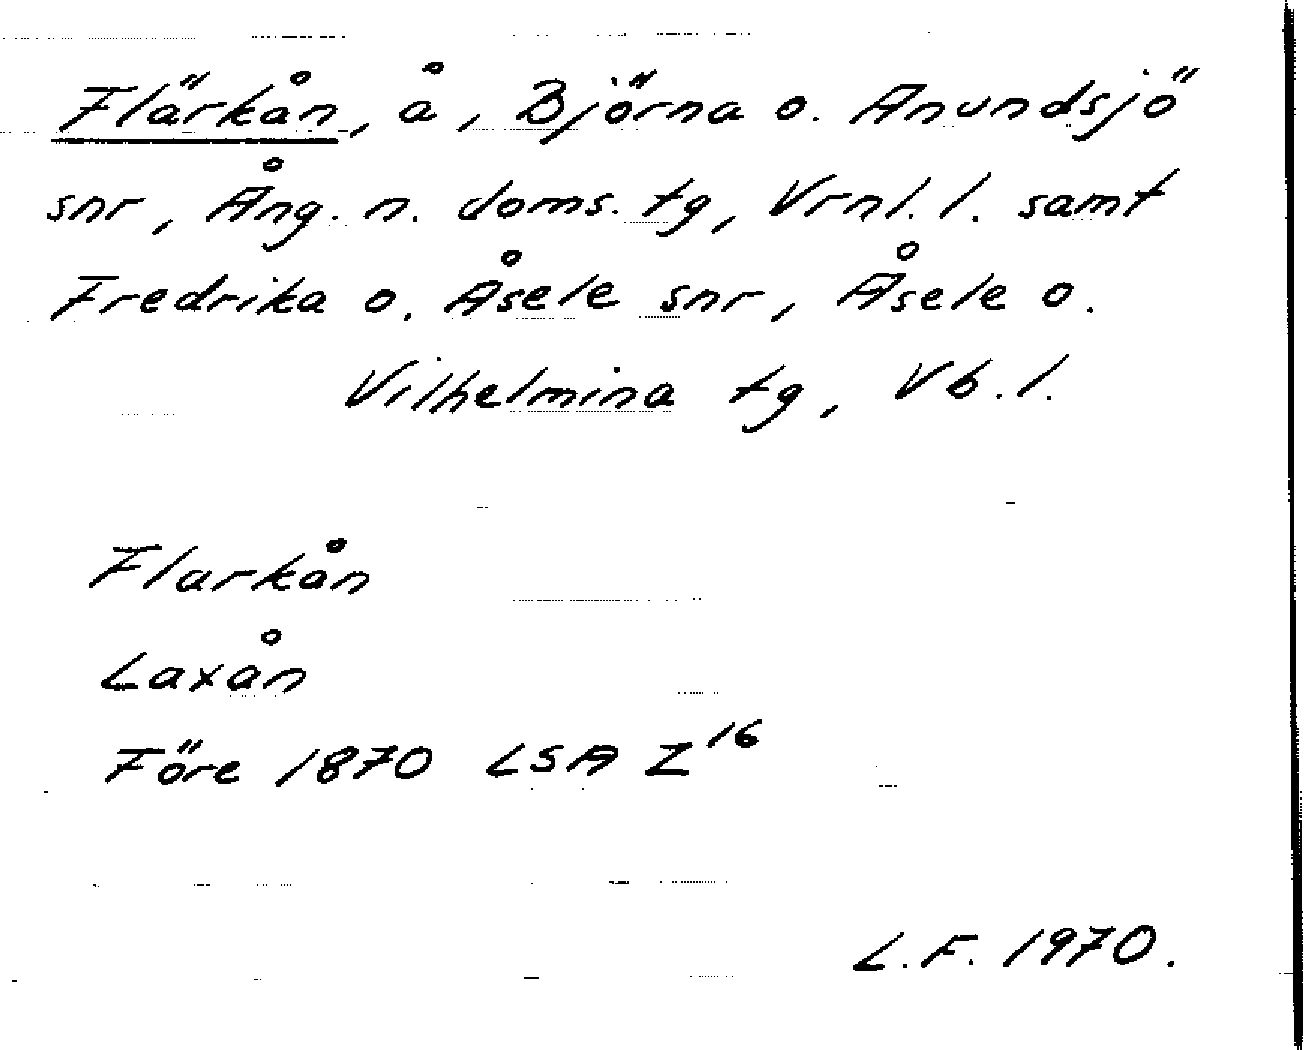 Flärkån, å, Björna o. Anundsjö
snr, Ång. n. doms. tg, Vrnl. l. samt
Fredrika o. Åsele snr, Åsele o.
Vilhelmina tg, Vb. l.
Flarkån
Laxån
Före 1870 LSA Z¹⁶
L.F. 1970.